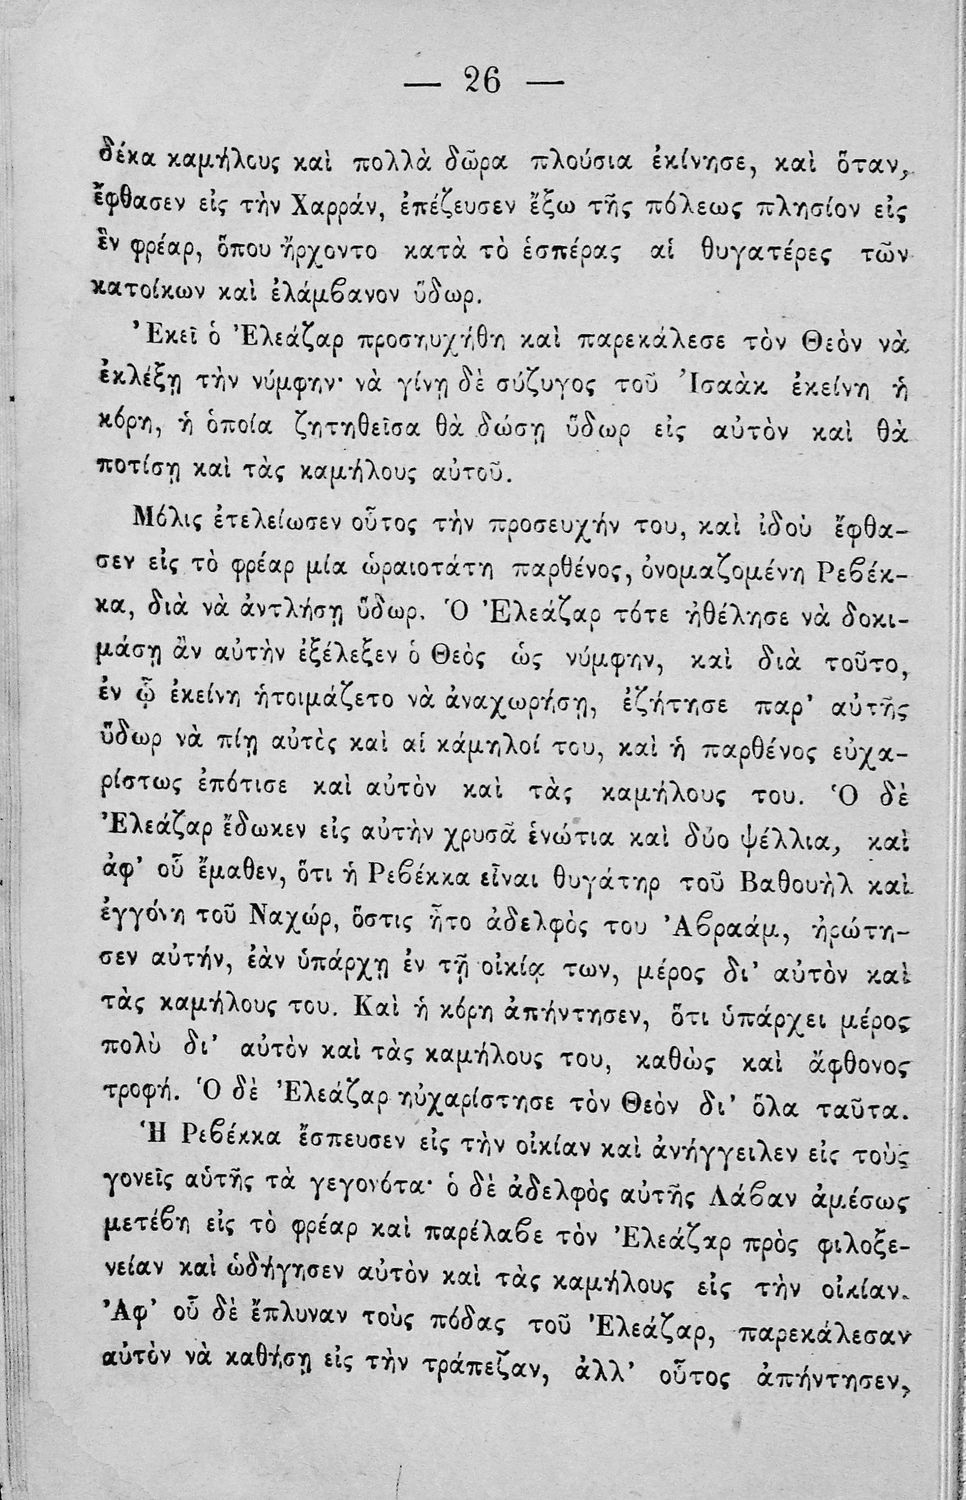 — 26 —
δέκα καμήλους καὶ πολλὰ δῶρα πλούσια ἐκίνησε, καὶ ὅταν,
ἔφθασεν εἰς τὴν Χαρράν, ἐπέζευσεν ἔξω τῆς πόλεως πλησίον εἰς
ἓν φρέαρ, ὅπου ἤρχοντο κατὰ τὸ ἑσπέρας αἱ θυγατέρες τῶν
κατοίκων καὶ ἐλάμϐανον ὕδωρ.
Ἐκεῖ ὁ Ἐλεάζαρ προσηυχήθη καὶ παρεκάλεσε τὸν Θεὸν νὰ
ἐκλέξῃ τὴν νύμφην· νὰ γίνῃ δὲ σύζυγος τοῦ Ἰσαὰκ ἐκείνη ἡ
κόρη, ἡ ὁποία ζητηθεῖσα θὰ δώσῃ ὕδωρ εἰς αὐτὸν καὶ θὰ
ποτίσῃ καὶ τὰς καμήλους αὐτοῦ.
Μόλις ἐτελείωσεν οὗτος τὴν προσευχήν του, καὶ ἰδοὺ ἔφθα-
σεν εἰς τὸ φρέαρ μία ὡραιοτάτη παρθένος, ὀνομαζομένη Ρεϐέκ-
κα, διὰ νὰ ἀντλήσῃ ὕδωρ. Ὁ Ἐλεάζαρ τότε ἠθέλησε νὰ δοκι-
μάσῃ ἂν αὐτὴν ἐξέλεξεν ὁ Θεὸς ὡς νύμφην, καὶ διὰ τοῦτο,
ἐν ᾧ ἐκείνη ἡτοιμάζετο νὰ ἀναχωρήσῃ, ἐζήτησε παρ' αὐτῆς
ὕδωρ νὰ πίῃ αὐτὸς καὶ αἱ κάμηλοί του, καὶ ἡ παρθένος εὐχα-
ρίστως ἐπότισε καὶ αὐτὸν καὶ τὰς καμήλους του. Ὁ δὲ
Ἐλεάζαρ ἔδωκεν εἰς αὐτὴν χρυσᾶ ἐνώτια καὶ δύο ψέλλια, καὶ
ἀφ' οὗ ἔμαθεν, ὅτι ἡ Ρεϐέκκα εἶναι θυγάτηρ τοῦ Βαθουὴλ καὶ
ἐγγόνη τοῦ Ναχώρ, ὅστις ἦτο ἀδελφὸς του Ἀϐραάμ, ἠρώτη-
σεν αὐτήν, ἐὰν ὑπάρχῃ ἐν τῇ οἰκίᾳ των, μέρος δι' αὐτὸν καὶ
τὰς καμήλους του. Καὶ ἡ κόρη ἀπήντησεν, ὅτι ὑπάρχει μέρος
πολὺ δι' αὐτὸν καὶ τὰς καμήλους του, καθὼς καὶ ἄφθονος
τροφή. Ὁ δὲ Ἐλεάζαρ ηὐχαρίστησε τὸν Θεὸν δι' ὅλα ταῦτα.
Ἡ Ρεϐέκκα ἔσπευσεν εἰς τὴν οἰκίαν καὶ ἀνήγγειλεν εἰς τοὺς
γονεῖς αὑτῆς τὰ γεγονότα· ὁ δὲ ἀδελφὸς αὐτῆς Λάϐαν ἀμέσως
μετέϐη εἰς τὸ φρέαρ καὶ παρέλαϐε τὸν Ἐλεάζαρ πρὸς φιλοξε-
νείαν καὶ ὡδήγησεν αὐτὸν καὶ τὰς καμήλους εἰς τὴν οἰκίαν.
Ἀφ' οὗ δὲ ἔπλυναν τοὺς πόδας τοῦ Ἐλεάζαρ, παρεκάλεσαν
αὐτὸν νὰ καθήσῃ εἰς τὴν τράπεζαν, ἀλλ' οὗτος ἀπήντησεν,